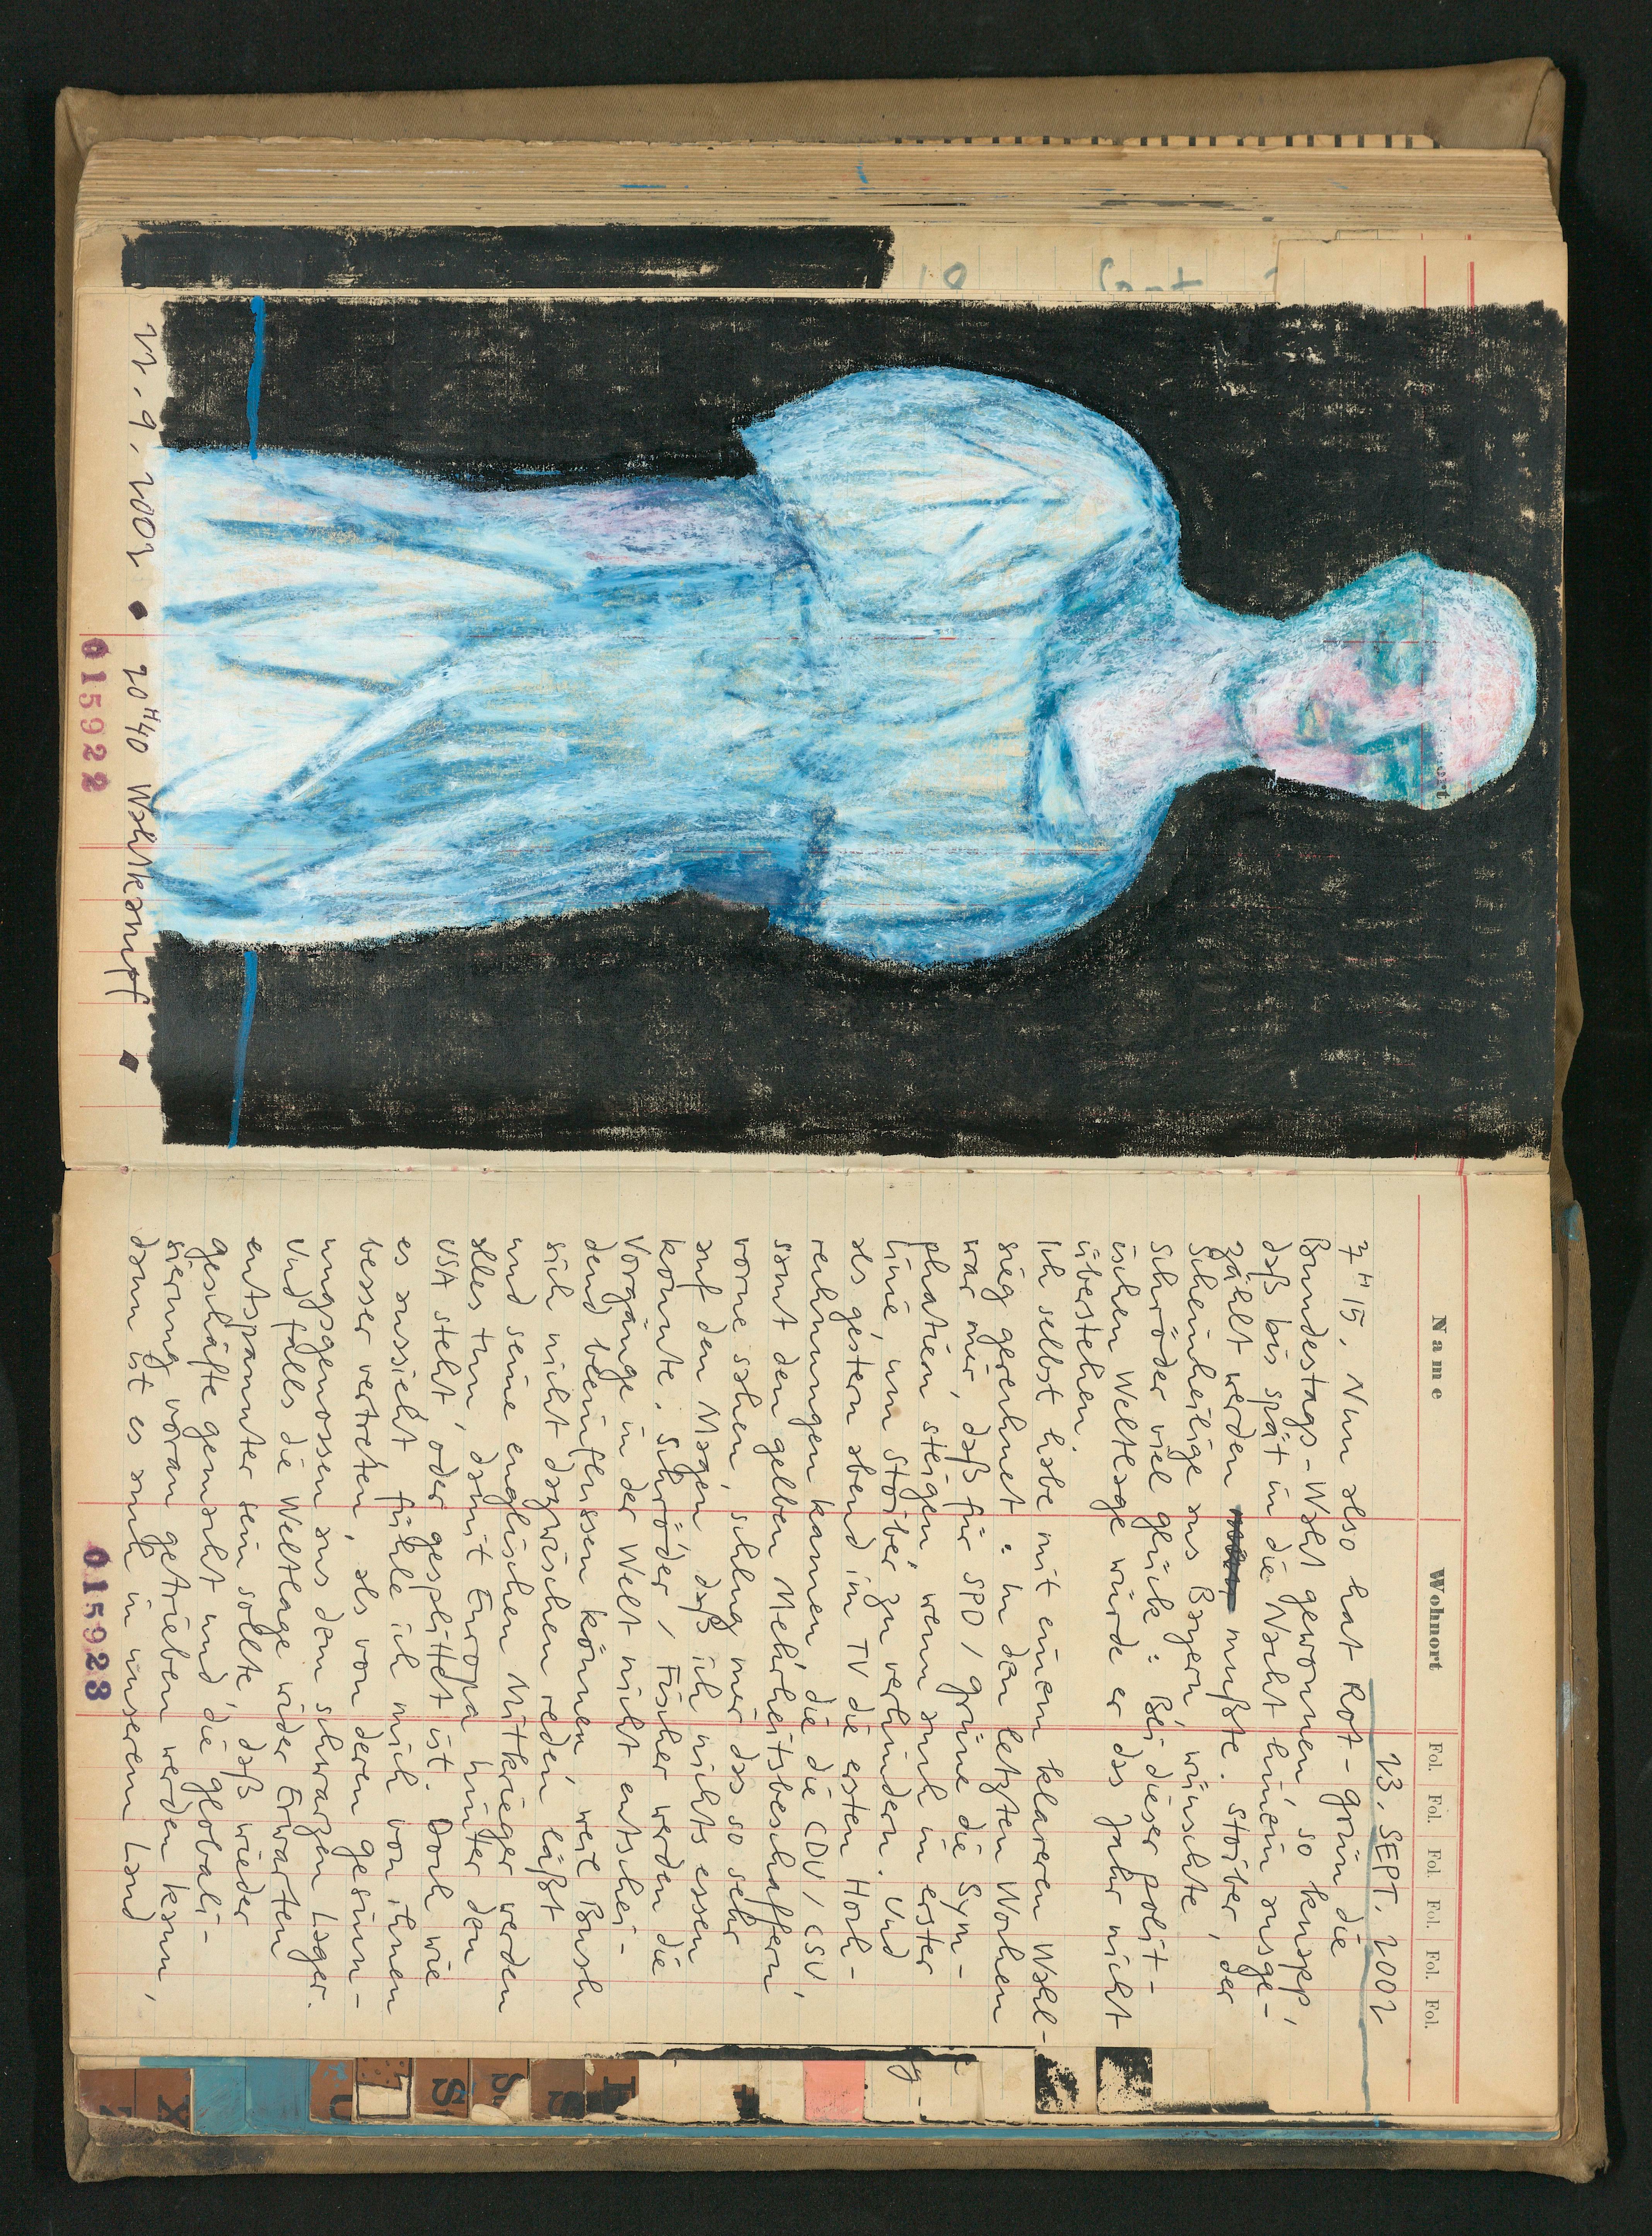 22.9.2002 ◆ 20ᴴ40 Wahlkampf ◆
015922
Name Wohnort Fol. Fol. Fol. Fol. Fol. Fol.
23. SEPT. 2002
7ᴴ15, Nun also hat Rot-grün die
Bundestags-Wahl gewonnen, so knapp,
daß bis spät in die Nacht hinein ausge-
zählt werden mußte. Stoiber, der
Scheinheilige aus Bayern, wünschte
Schröder viel Glück: Bei dieser polit-
ischen Weltlage würde er das Jahr nicht
überstehen.
Ich selbst habe mit einem klareren Wahl-
sieg gerechnet: In den letzten Wochen
war mir, daß für SPD/Grüne die Sym-
phatien steigen, wenn auch in erster
Linie, um Stoiber zu verhindern. Und
als gestern abend im TV die ersten Hoch-
rechnungen kamen, die die CDU/CSU,
samt den gelben Mehrheitsbeschaffern
vorne sahen, schlug mir das so sehr
auf den Magen, daß ich nichts essen
konnte. Schröder/Fischer werden die
Vorgänge in der Welt nicht entschei-
dend beeinflussen können, weil Bush
sich nicht dazwischen reden läßt
und seine englischen Mitkrieger werden
alles tun, damit Europa hinter den
USA steht, oder gesplittet ist. Doch wie
es aussieht fühle ich mich von ihnen
besser vertreten, als von deren gesinn-
ungsgenossen aus dem schwarzen Lager.
Und falls die Weltlage wider Erwarten
entspannter sein sollte, daß wieder
geschäfte gemacht und die globali-
sierung voran getrieben werden kann,
dann ist es auch in unserem Land
015923